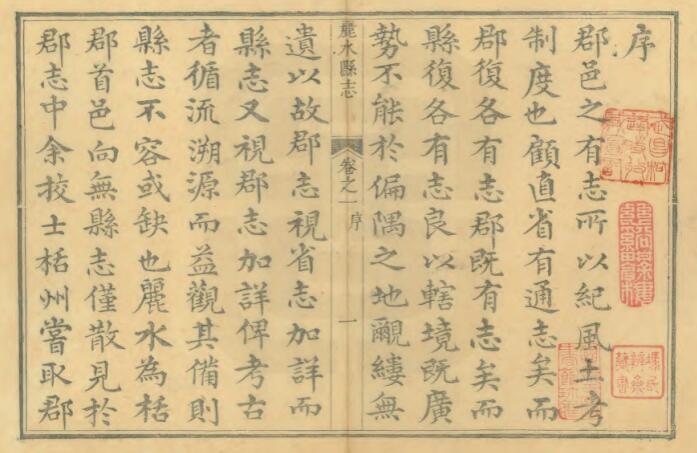 序
郡邑之有志所以紀風土考
制度也顧直省有通志矣而
郡復各有志郡既有志矣而
縣復各有志良以轄境既廣
勢不能於偏隅之地覼縷無
麗水縣志
卷之一 序
一
遺以故郡志視省志加詳而
縣志又視郡志加詳俾考古
者循流溯源而益觀其備則
縣志不容或缺也麗水為栝
郡首邑向無縣志僅散見於
郡志中余挍士栝州嘗取郡